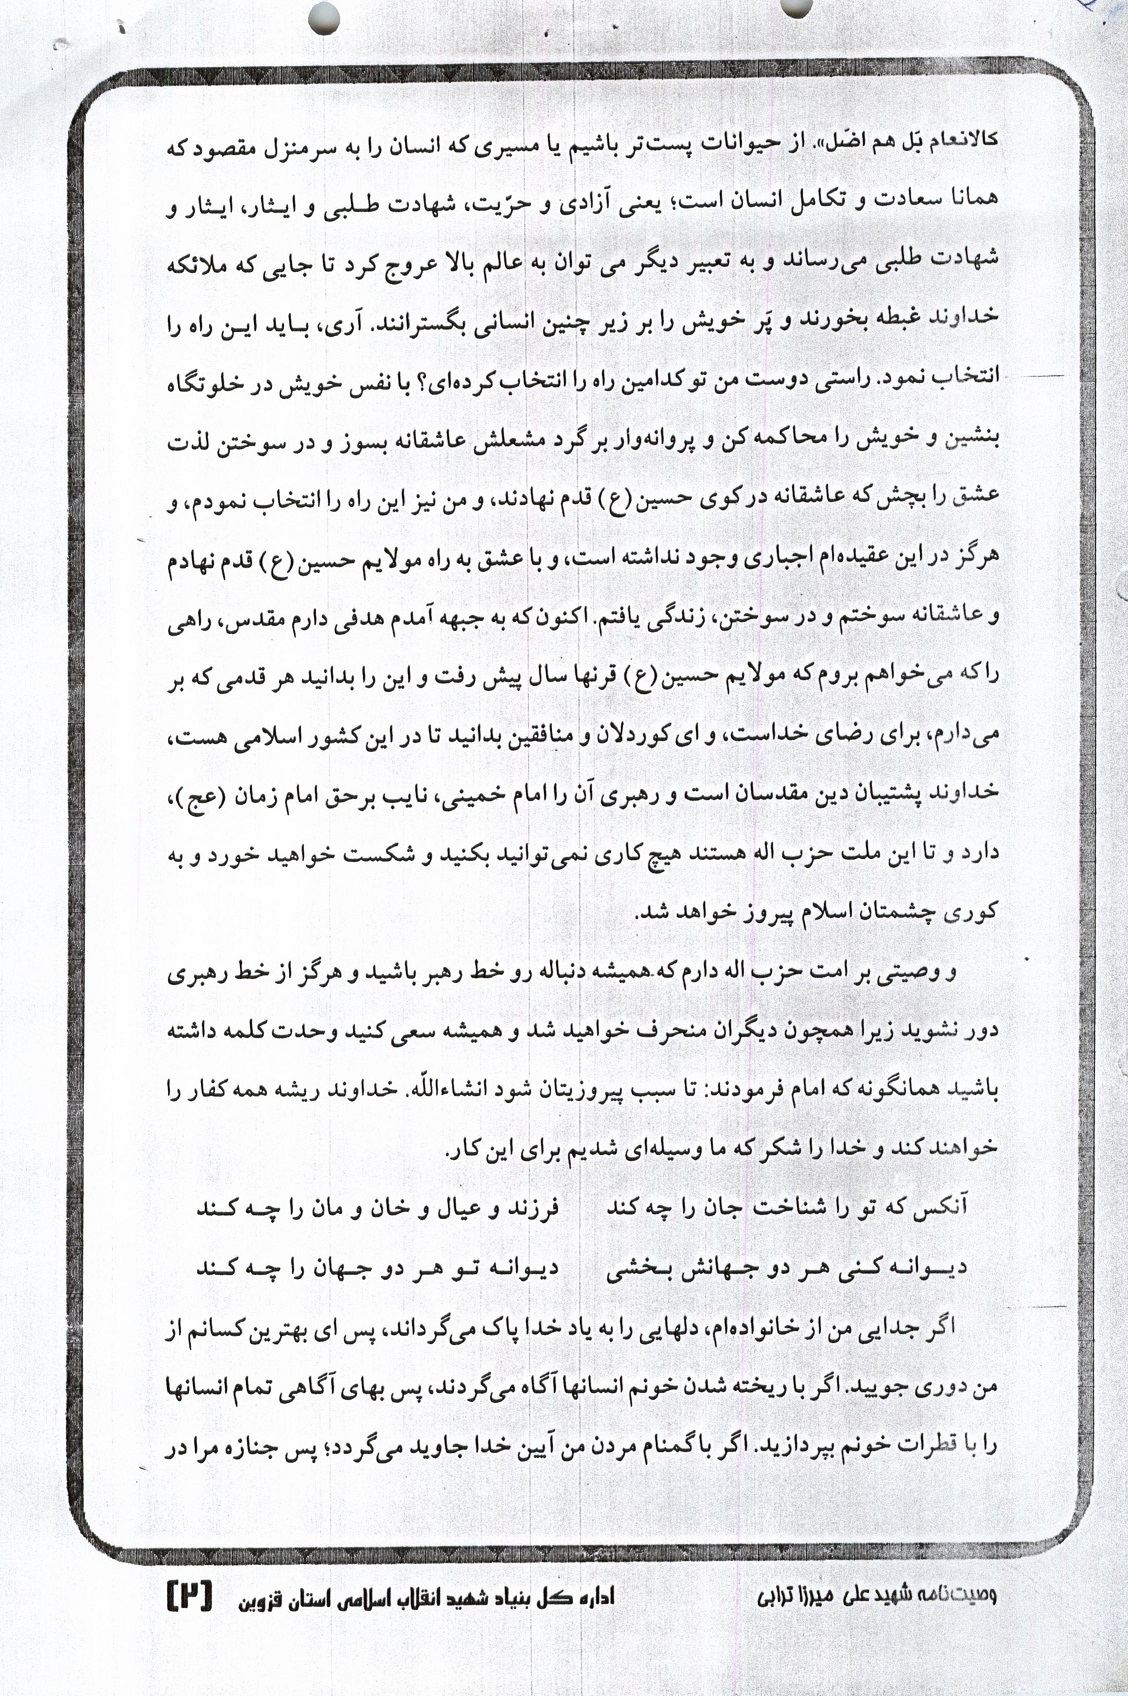 کالانعام بَل هم اضَل». از حیوانات پست‌تر باشیم یا مسیری که انسان را به سرمنزل مقصود که
همانا سعادت و تکامل انسان است؛ یعنی آزادی و حرّیت، شهادت طلبی و ایثار، ایثار و
شهادت طلبی می‌رساند و به تعبیر دیگر می توان به عالم بالا عروج کرد تا جایی که ملائکه
خداوند غبطه بخورند و پَر خویش را بر زیر چنین انسانی بگسترانند. آری، باید این راه را
انتخاب نمود. راستی دوست من تو کدامین راه را انتخاب کرده‌ای؟ با نفس خویش در خلوتگاه
بنشین و خویش را محاکمه کن و پروانه‌وار بر گرد مشعلش عاشقانه بسوز و در سوختن لذت
عشق را بچش که عاشقانه در کوی حسین(ع) قدم نهادند، و من نیز این راه را انتخاب نمودم، و
هرگز در این عقیده‌ام اجباری وجود نداشته است، و با عشق به راه مولایم حسین(ع) قدم نهادم
و عاشقانه سوختم و در سوختن، زندگی یافتم. اکنون که به جبهه آمدم هدفی دارم مقدس، راهی
را که می‌خواهم بروم که مولایم حسین(ع) قرنها سال پیش رفت و این را بدانید هر قدمی که بر
می‌دارم، برای رضای خداست، و ای کوردلان و منافقین بدانید تا در این کشور اسلامی هست،
خداوند پشتیبان دین مقدسان است و رهبری آن را امام خمینی، نایب برحق امام زمان (عج)،
دارد و تا این ملت حزب اله هستند هیچ کاری نمی‌توانید بکنید و شکست خواهید خورد و به
کوری چشمتان اسلام پیروز خواهد شد.
و وصیتی بر امت حزب اله دارم که همیشه دنباله رو خط رهبر باشید و هرگز از خط رهبری
دور نشوید زیرا همچون دیگران منحرف خواهید شد و همیشه سعی کنید وحدت کلمه داشته
باشید همانگونه که امام فرمودند: تا سبب پیروزیتان شود انشاءاللّه. خداوند ریشه همه کفار را
خواهند کند و خدا را شکر که ما وسیله‌ای شدیم برای این کار.
آنکس که تو را شناخت جان را چه کند فرزند و عیال و خان و مان را چه کند
دیوانه کنی هر دو جهانش بخشی دیوانه تو هر دو جهان را چه کند
اگر جدایی من از خانواده‌ام، دلهایی را به یاد خدا پاک می‌گرداند، پس ای بهترین کسانم از
من دوری جویید. اگر با ریخته شدن خونم انسانها آگاه می‌گردند، پس بهای آگاهی تمام انسانها
را با قطرات خونم بپردازید. اگر با گمنام مردن من آیین خدا جاوید می‌گردد؛ پس جنازه مرا در
وصیت‌نامه شهید علی میرزا ترابی اداره کل بنیاد شهید انقلاب اسلامی استان قزوین [۲]